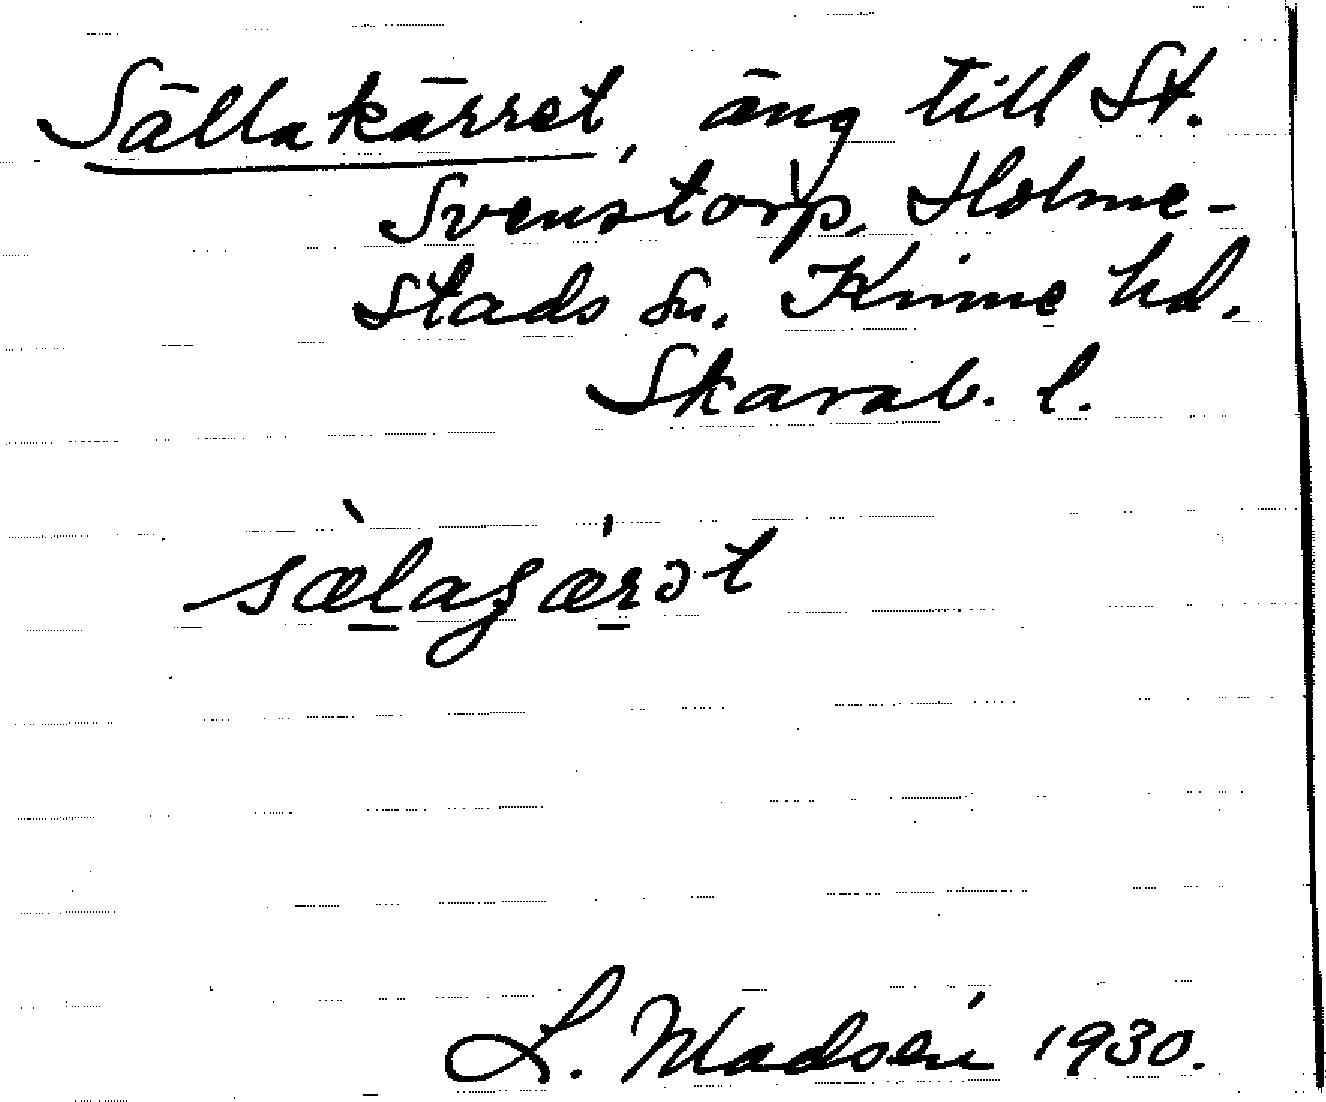 Sällakärret, äng till St.
Svenstorp, Holme-
stads sn. Kinne hd.
Skarab. l.
sæ̀l̠agæ̍r̠ət
L. Madsén 1930.